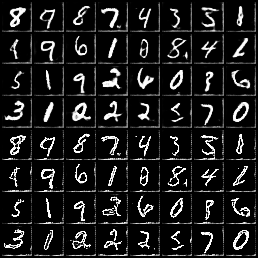 8 9 8 7 4 3 5 8
9 9 6 1 0 8 4 1
5 1 9 2 6 0 8 6
3 1 2 2 2 5 7 0
8 9 8 7 4 3 5 8
9 9 6 1 0 8 4 1
5 1 9 2 6 0 8 6
3 1 2 2 2 5 7 0